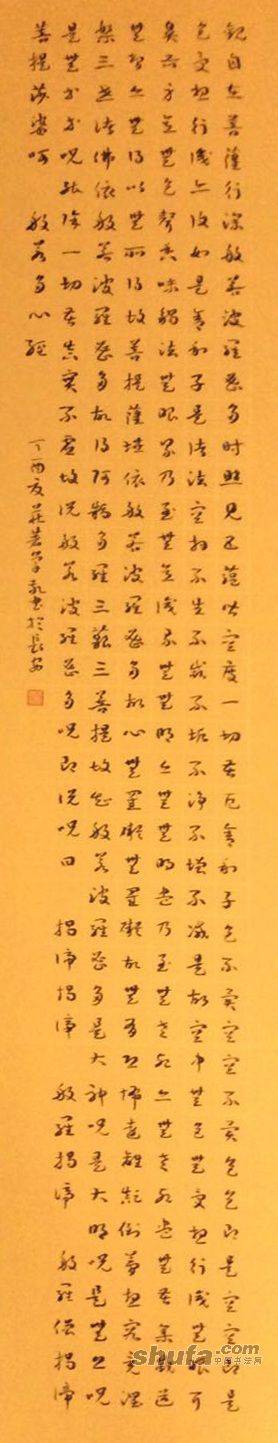 觀自在菩薩行深般若波羅蜜多時照見五蘊皆空度一切苦厄舍利子色不異空空不異色色即是空空即是
色受想行識亦復如是舍利子是諸法空相不生不滅不垢不淨不增不減是故空中無色無受想行識無眼耳
鼻舌身意無色聲香味觸法無眼界乃至無意識界無無明亦無無明盡乃至無老死亦無老死盡無苦集滅道
無智亦無得以無所得故菩提薩埵依般若波羅蜜多故心無罣礙無罣礙故無有恐怖遠離顛倒夢想究竟涅
槃三世諸佛依般若波羅蜜多故得阿耨多羅三藐三菩提故知般若波羅蜜多是大神咒是大明咒是無上咒
是無等等咒能除一切苦真實不虛故說般若波羅蜜多咒即說咒曰 揭諦揭諦 般羅揭諦 般羅僧揭諦
菩提莎婆呵 般若多心經
丁酉夏 書於長安
shufa.com
中国书法网